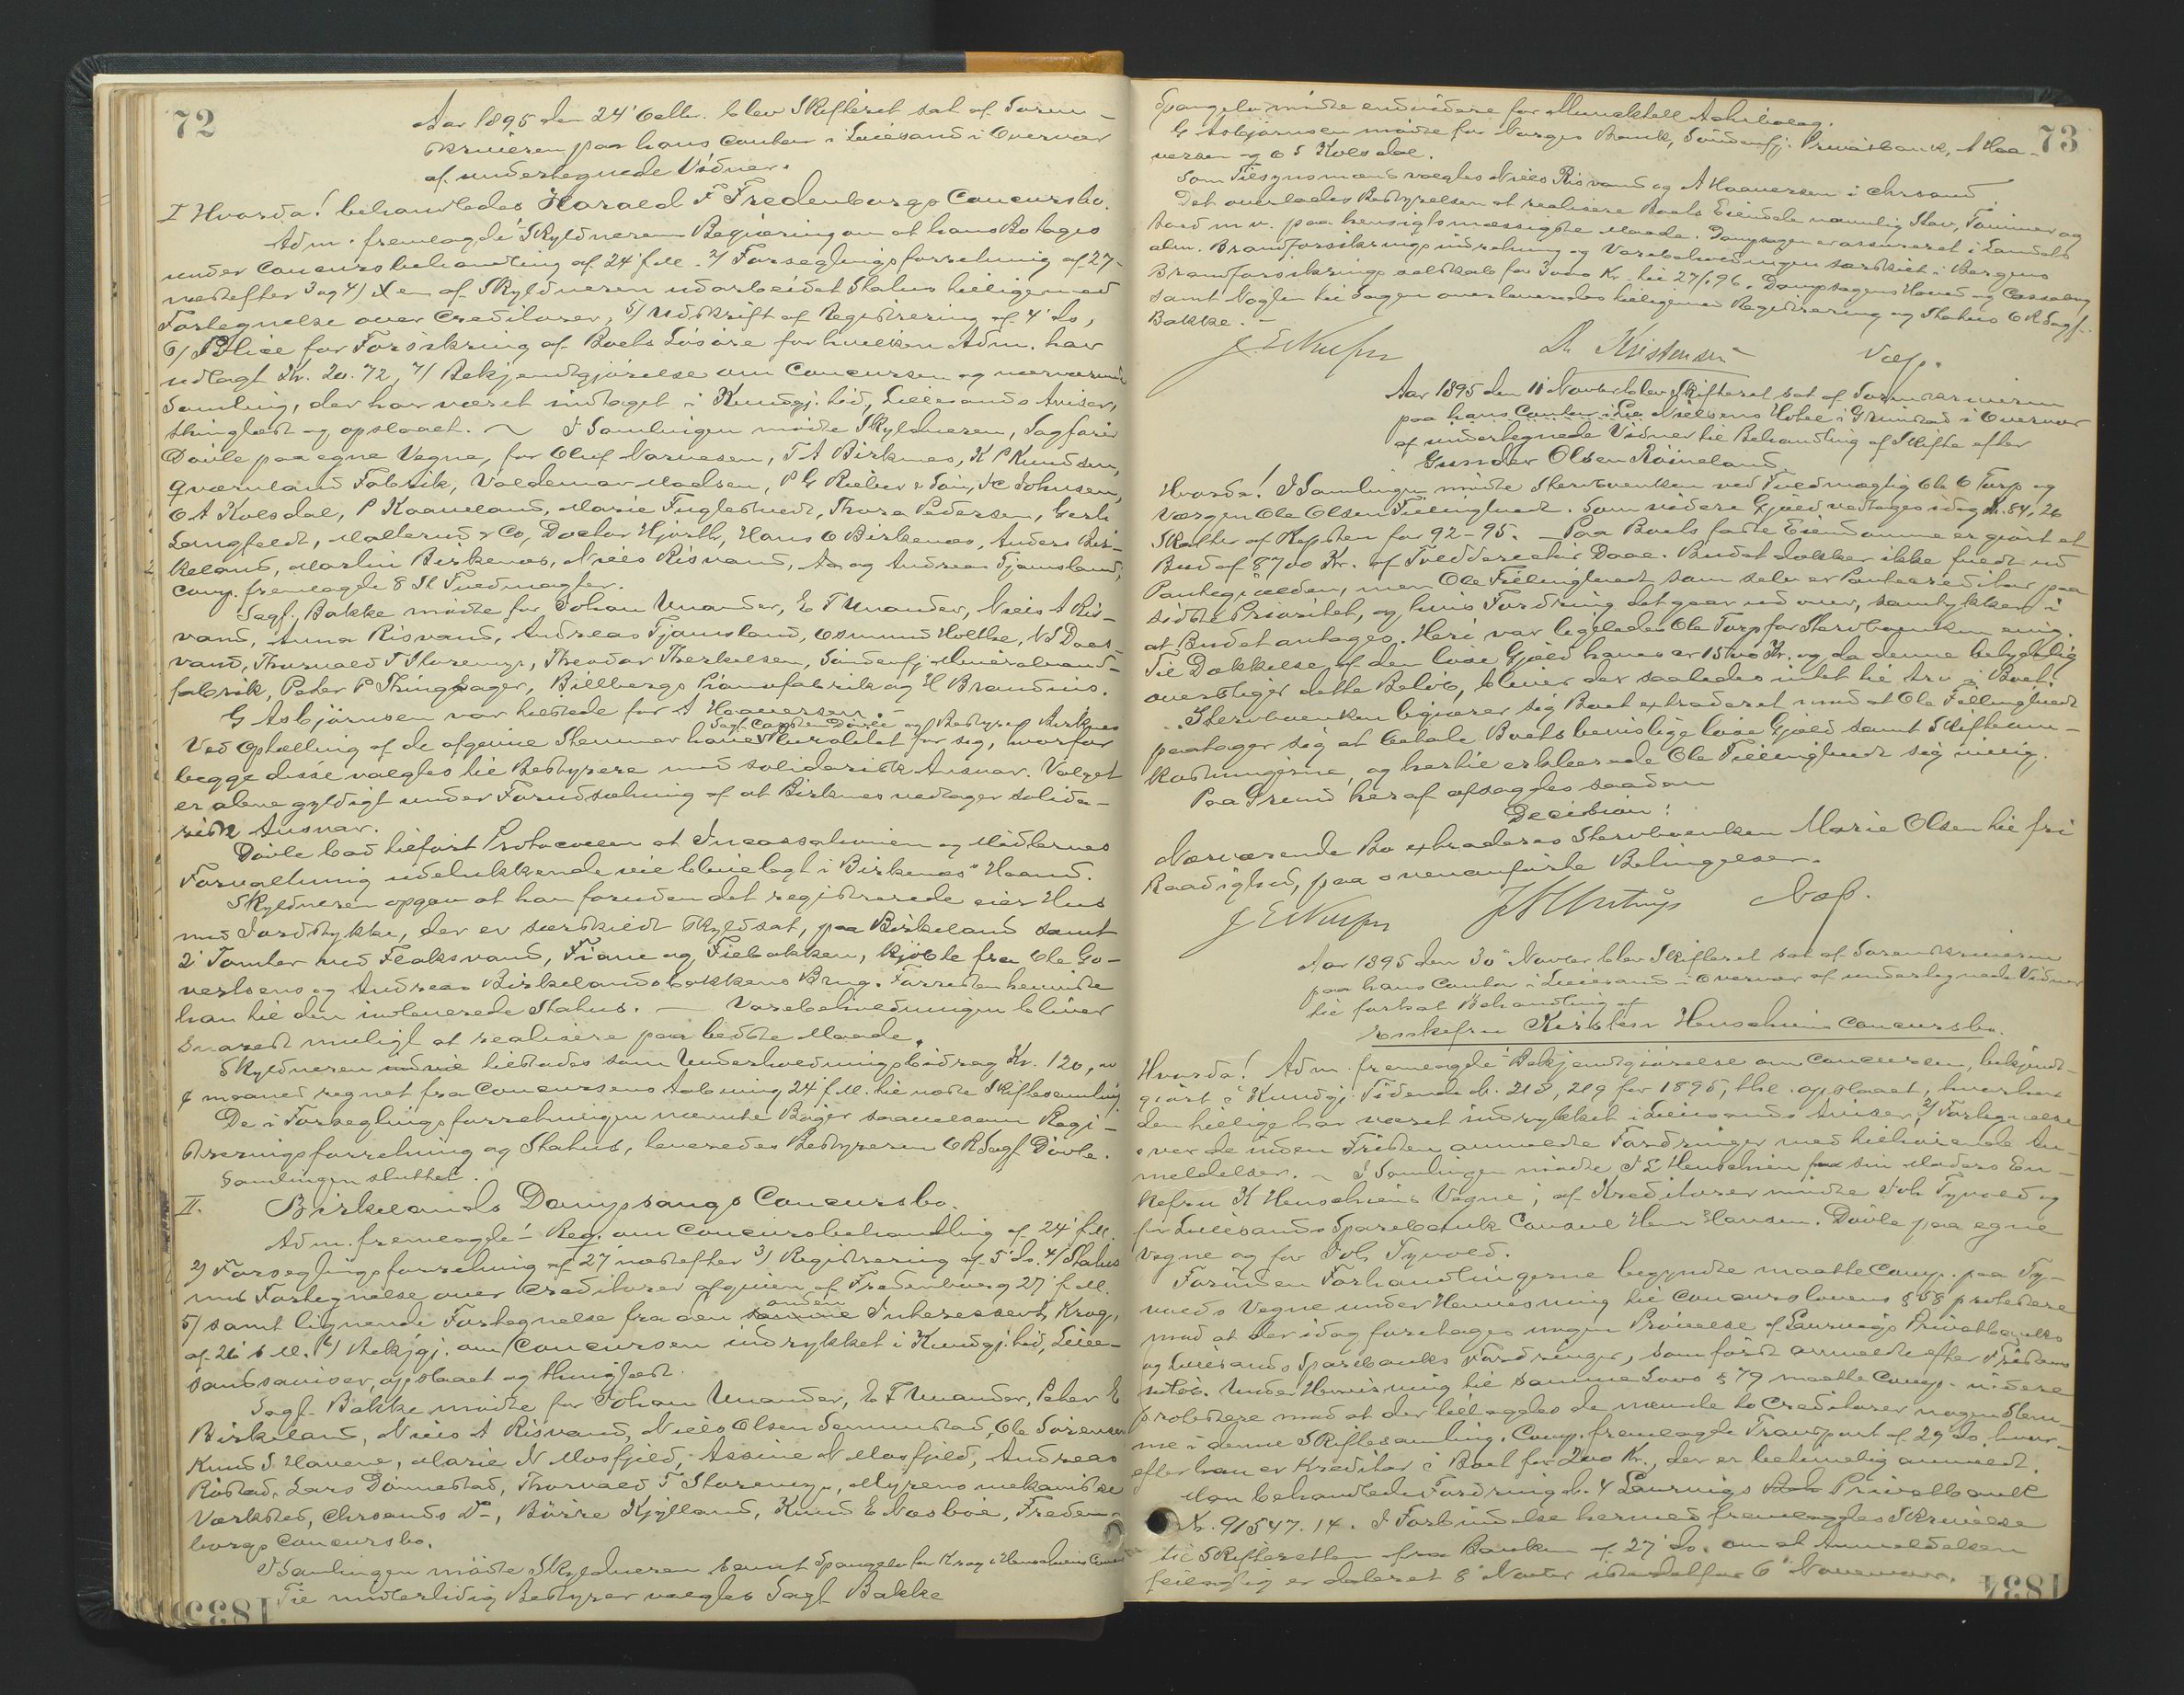 72
Aar 1895 den 24' Octbr. blev Skifteret sat af Soren-
skriveren paa hans Contor i Lillesand i Overvær
af undertegnede Vidner.
I Hvorda! behandledes Harald F Fredenborgs Concursbo.
Adm. fremlagde 1 Skyldneren Begjæring om at hans Bo tages
under Concursbehandling af 24' f.M. 2/ Forseglingsforretning af 27-
næstefter 3 og 4) Den af Skyldneren udarbeidet Status tilligemed
Fortegnelse over Creditorer, 5) Udskrift af Registrering af 4' ds,
6) Police for Forsikring af Boets Løsøre for hvilken Adm. har
udlagt Kr. 20.72, 7/ Bekjendtgjørelse om Concursen og nærværende
Samling, der har været indtaget i Kundgj. tid, Lillesands Aviser,
thinglæst og opslaaet. ~ I Samlingen mødte Skyldneren, Sagfører
Døvle paa egne Vegne, for Oluf Narvesen, T A Birkenes, K P Knudsen,
Qværnland Fabrik, Valdemar Madsen, P G Rieber & Søn, J C Johnsen,
O A Kolsdal, P Kaaveland, Marie Fuglestvedt, Thora Pedersen, Gerh
Langfeldt, Mallerud & Co, Doctor Hjorth, Hans O Birkenes, Anders Bir-
keland, Martin Birkenes, Niels Risvand, Aa og Andreas Tjamsland,
Comp. fremlagde 8 St Fuldmagter.
Sagf. Bakke mødte for Johan Unander, E T Unander, Niels A Ris-
vand, Anna Risvand, Andreas Tjamsland, Osmund Holthe, N S Daas-
vand, Thorvald T Storemyr, Theodor Therkelsen, Søndenfj. Mineralvand-
fabrik, Peter P Thingsager, Billbergs Pianofabrik og H Brandnis.
G Asbjørnsen var tilstede for A Haaversen. -
Ved Optælling af de afgivne Stemmer havde Sagf. Carsten Døvle og Bestyrer Birkenes Pluralitet for sig, hvorfor
begge disse valgtes til Bestyrere med solidarisk Ansvar. Valget
er alene gyldigt under Forudsætning af at Birkenes vedtager solida-
risk Ansvar.
Døvle bad tilført Protocollen at Incassationen og Midlernes
Forvaltning udelukkende vil blive lagt i Birkenes' Haand.
Skyldneren opgav at han foruden det registrerede eier Hus
med Jordstykke, der er særskildt skyldsat, paa Birkeland samt
2 Tomter ved Flaksvand, Fiane og Fiebakken, kjøbte fra Ole Go-
vertsens og Andreas Birkelandsbakkens Brug. Forresten henviste
han til den indleverede Status. - Varebeholdningen bliver
snarest muligt at realisere paa bedste Maade.
Skyldneren tilstodes som Underholdningsbidrag Kr. 120,00
pr maaned regnet fra Concursens Aabning 24' f.M. til næste Skiftesamling.
De i Forseglingsforretningen nævnte Bøger saavelsom Regi-
streringsforretning og Status, leveredes Bestyreren ORSagf Døvle.
Samlingen sluttet.
II. Birkelands Dampsaugs Concursbo.
Adm. fremlagde 1 Beg. om Concursbehandling af 24' f.M.
2) Forseglingsforretning af 27' næstefter 3) Registrering af 5' ds. 4) Status
med Fortegnelse over Creditorer afgiven af Fredenborg 27' f.M.
5) samt lignende Fortegnelse fra den anden Interessent, Krog,
af 26' s M. 6) Bekjgj. om Concursen indrykket i Kundgj. tid, Lille-
sandsaviser, opslaaet og thinglæst.
Sagf. Bakke mødte for Johan Unander, E T Unander, Peter E
Birkeland, Niels A Risvand, Niels Olsen Senumstad, Ole Sørensen
Knud S. Havene, Marie N Mosfjeld, Assine N Mosfjeld, Andreas
Røstad, Lars Dønnestad, Thorvald T Storemyr, Myrens mekaniske
Værksted, Chrsands Do, Børre Kjylland, Knud E Næsbøe, Freden-
borgs Concursbo.
I Samlingen mødte Skyldneren samt Spangelo for Krog i Henschiens
Til midlertidig Bestyrer valgtes Sagf Bakke
73
Spangelo mødte endvidere for Munktell Actiebolag.
G Asbjørnsen mødte for Norges Bank, Søndenfj. Privatbank, A Haa-
versen og O T Kolsdal.
Som Tilsynsmænd valgtes Niels Risvand og A Haaversen i Chrsand
Det overlades Bestyrelsen at realisere Boets Eiendele navnlig Stav, Tømmer og
Bord m.v. paa hensigtsmæssigste Maade. Dampsagen er assureret i Landets
alm. Brandforsikrings indretning og Varebeholdningen særskilt i Bergens
Brandforsikringsselskab for 3000 Kr. til 27/1 96. Dampsagens Hoved og Cassabog
samt Nøgler til Sagen overleveredes tilligemed Registrering og Status ORSagf.
Bakke. -
Chr Kristensen
Aar 1895 den 11 Novbr blev Skifteret sat af Sorenskriveren
paa hans Contor i Lil Nielsens Hotel i Grimstad i Overvær
af undertegnede Vidner til Behandling af Skifte efter
Gunder Olsen Røineland
Hvorda! I Samlingen mødte Stervboenken ved Fuldmægtig Ole O Tarp og
Værgen Ole Olsen Fillinglvedt. Som videre Gjæld vedtoges idag Kr. 84,26
Skatter af Repsten for 92-95. - Paa Boets faste Eiendomme er gjort et
Bud af 8700 Kr. af Tolddirectør Daae. Budet dækker ikke fuldt ud
Pantegjælden, men Ole Fillinglvedt som selv er Panteereditor paa
sidste Prioritet, og hvis Fordring det gaar ud over, samtykker i
at Budet antages. Heri var ligeledes Ole Tarp for Stervboenken enig.
Til Dækkelse af den løse Gjæld haves ca 1500 Kr. og da denne betydelig
overstiger dette Beløb, bliver der saaledes intet til Arv i Boet.
Stervboenken begjærer sig Boet extraderet mod at Ole Fillinglvedt
paatager sig at betale Boets bevislige løse Gjæld samt Skifteom-
kostningerne, og hertil erklærede Ole Fillinglvedt sig villig.
Paa Grund heraf afsagdes saadan
Decision:
Nærværende Bo extraderes Stervboenken Marie Olsen til fri
Raadighed, paa ovenanførte Betingelser.
Aar 1895 den 30' Novbr blev Skifteret sat af Sorenskriveren
paa hans Contor i Lillesand i Overvær af undertegnede Vidner
til fortsat Behandling af
Enkefru Kirsten Henschiens Concursbo.
Hvorda! Adm. fremlagde 1 Bekjendtgjørelse om Concursen, bekjendt-
gjort i Kundgj. Tidende No. 218, 219 for 1895, thl. opslaaet, hvorhos
den tillige har været indrykket i Lillesands Aviser, 2) Fortegnelse
over de inden Fristen anmeldte Fordringer med tilhørende An-
meldelser. ~ I Samlingen mødte J L Henschien paa sin Moders En-
kefru K Henschiens Vegne; af Kreditorer mødte Joh Tyvold og
for Lillesands Sparebank Consul Henr Hansen. Døvle paa egne
Vegne og for Joh Tyvold.
Forinden Forhandlingerne begyndte maatte Comp. paa Ty-
volds Vegne under Henvisning til Concurslovens § 58 protestere
mod at der idag foretages nogen Prøvelse af Laurvigs Privatbanks
og Lillesands Sparebanks Fordringer, som først anmeldt efter Fristens
udløb. Under Henvisning til samme Lovs § 79 maatte Comp. videre
protestere mod at der tillægges de nævnte to Creditorer nogen Stem-
me i denne Skiftesamling. Comp. fremlagde Transport af 29' ds. hvor-
efter han er Kreditor i Boet for 200 Kr., der er betimelig anmeldt.
Man behandlede Fordring No. 4 Laurvigs Privatbank
Kr. 91547.14. I Forbindelse hermed fremlagdes Skrivelse
til Skifteretten fra Banken af 27' ds. om at Anmeldelsen
feilagtig er dateret 8' Novbr istedetfor 6' November.